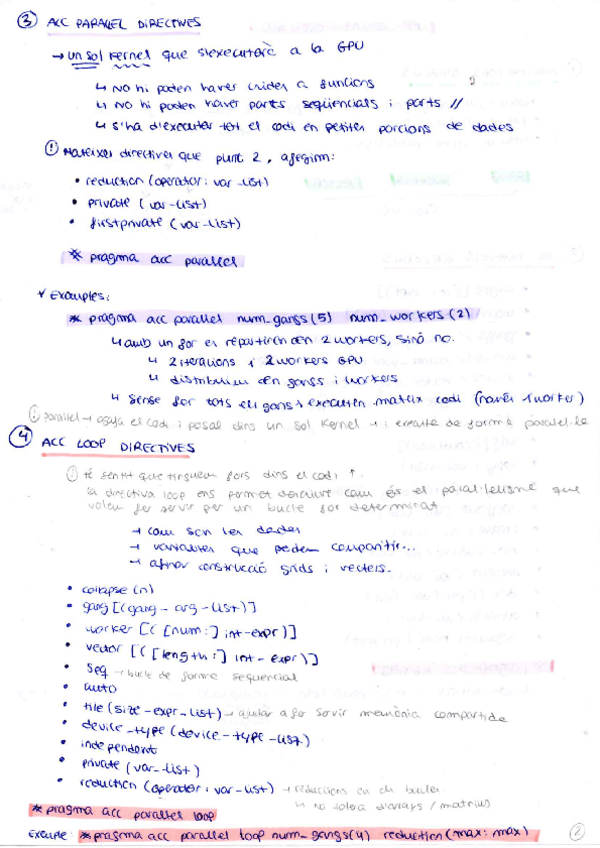 ③ ACC PARALLEL DIRECTIVES
→ un sol kernel que s'executarà a la GPU
↳ No hi poden haver crides a funcions
↳ No hi poden haver parts seqüencials i parts //
↳ s'ha d'executar tot el codi en petites porcions de dades
! Mateixes directives que punt 2, afegim:
• reduction (operator: var-list)
• private (var-list)
• firstprivate (var-list)
* pragma acc parallel
Exemples:
* pragma acc parallel num_gangs(5) num_workers(2)
↳ amb un for es repartiren 2 workers, sinó no.
↳ 2 iteracions i 2 workers GPU
↳ distribuïm en gangs i workers
↳ Sense for tots els gangs executen mateix codi (només 1 worker)
! parallel → agafa el codi i posal dins un sol kernel → i executa de forma paral·lela
④ ACC LOOP DIRECTIVES
! té sentit que tinguem fors dins el codi ↑.
la directiva loop ens permet descriure com és el paral·lelisme que
volem fer servir per un bucle for determinat
→ com son les dades
→ variables que podem compartir...
→ afinar construcció grids i vectors.
• collapse (n)
• gang [(gang-arg-list)]
• worker [([num:] int-expr)]
• vector [([length:] int-expr)]
• seq → bucle de forma seqüencial
• auto
• tile (size-expr-list) → ajudar a fer servir memòria compartida
• device-type (device-type-list)
• independent
• private (var-list)
• reduction (operator: var-list) → reduccions en els bucles
↳ no tolera d'arrays / matrius
* pragma acc parallel loop
Exemple: * pragma acc parallel loop num_gangs(4) reduction(max: max)
②